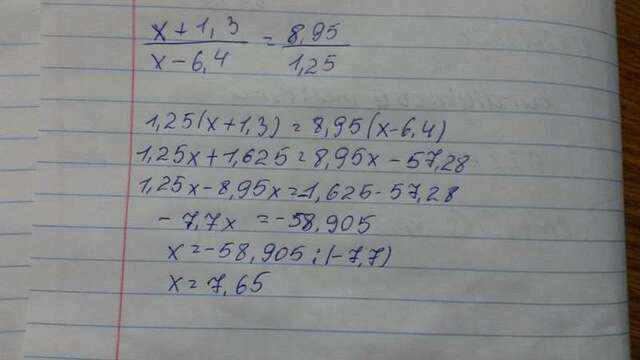 x+1,3 / x-6,4 = 8,95 / 1,25
1,25(x+1,3)=8,95(x-6,4)
1,25x+1,625=8,95x-57,28
1,25x-8,95x=-1,625-57,28
-7,7x=-58,905
x=-58,905:(-7,7)
x=7,65